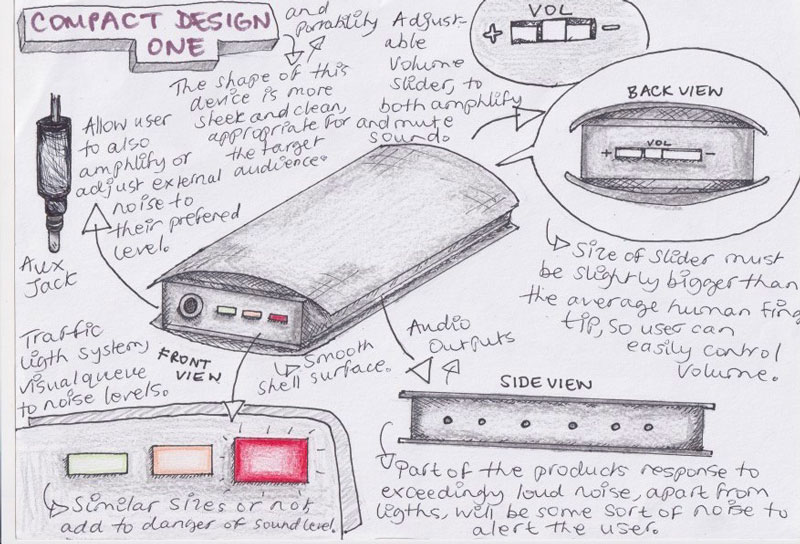 COMPACT DESIGN
ONE
and
Portability
The shape of this
device is more
sleek and clean,
appropriate for
the target
audience.
Adjust-
able
Volume
slider, to
both amphlify
and mute
sound.
VOL
+ -
BACK VIEW
VOL
+ -
Size of slider must
be slightly bigger than
the average human fing
tip, so user can
easily control
volume.
Allow user
to also
amphlify or
adjust external
noise to
their prefered
level.
Aux
Jack
FRONT
VIEW
Smooth
shell surface.
Audio
Outputs
Traffic
ligth system,
visual queue
to noise levels.
Similar sizes or not,
add to danger of sound level.
SIDE VIEW
Part of the products response to
exceedingly loud noise, apart from
ligths, will be some sort of noise to
alert the user.